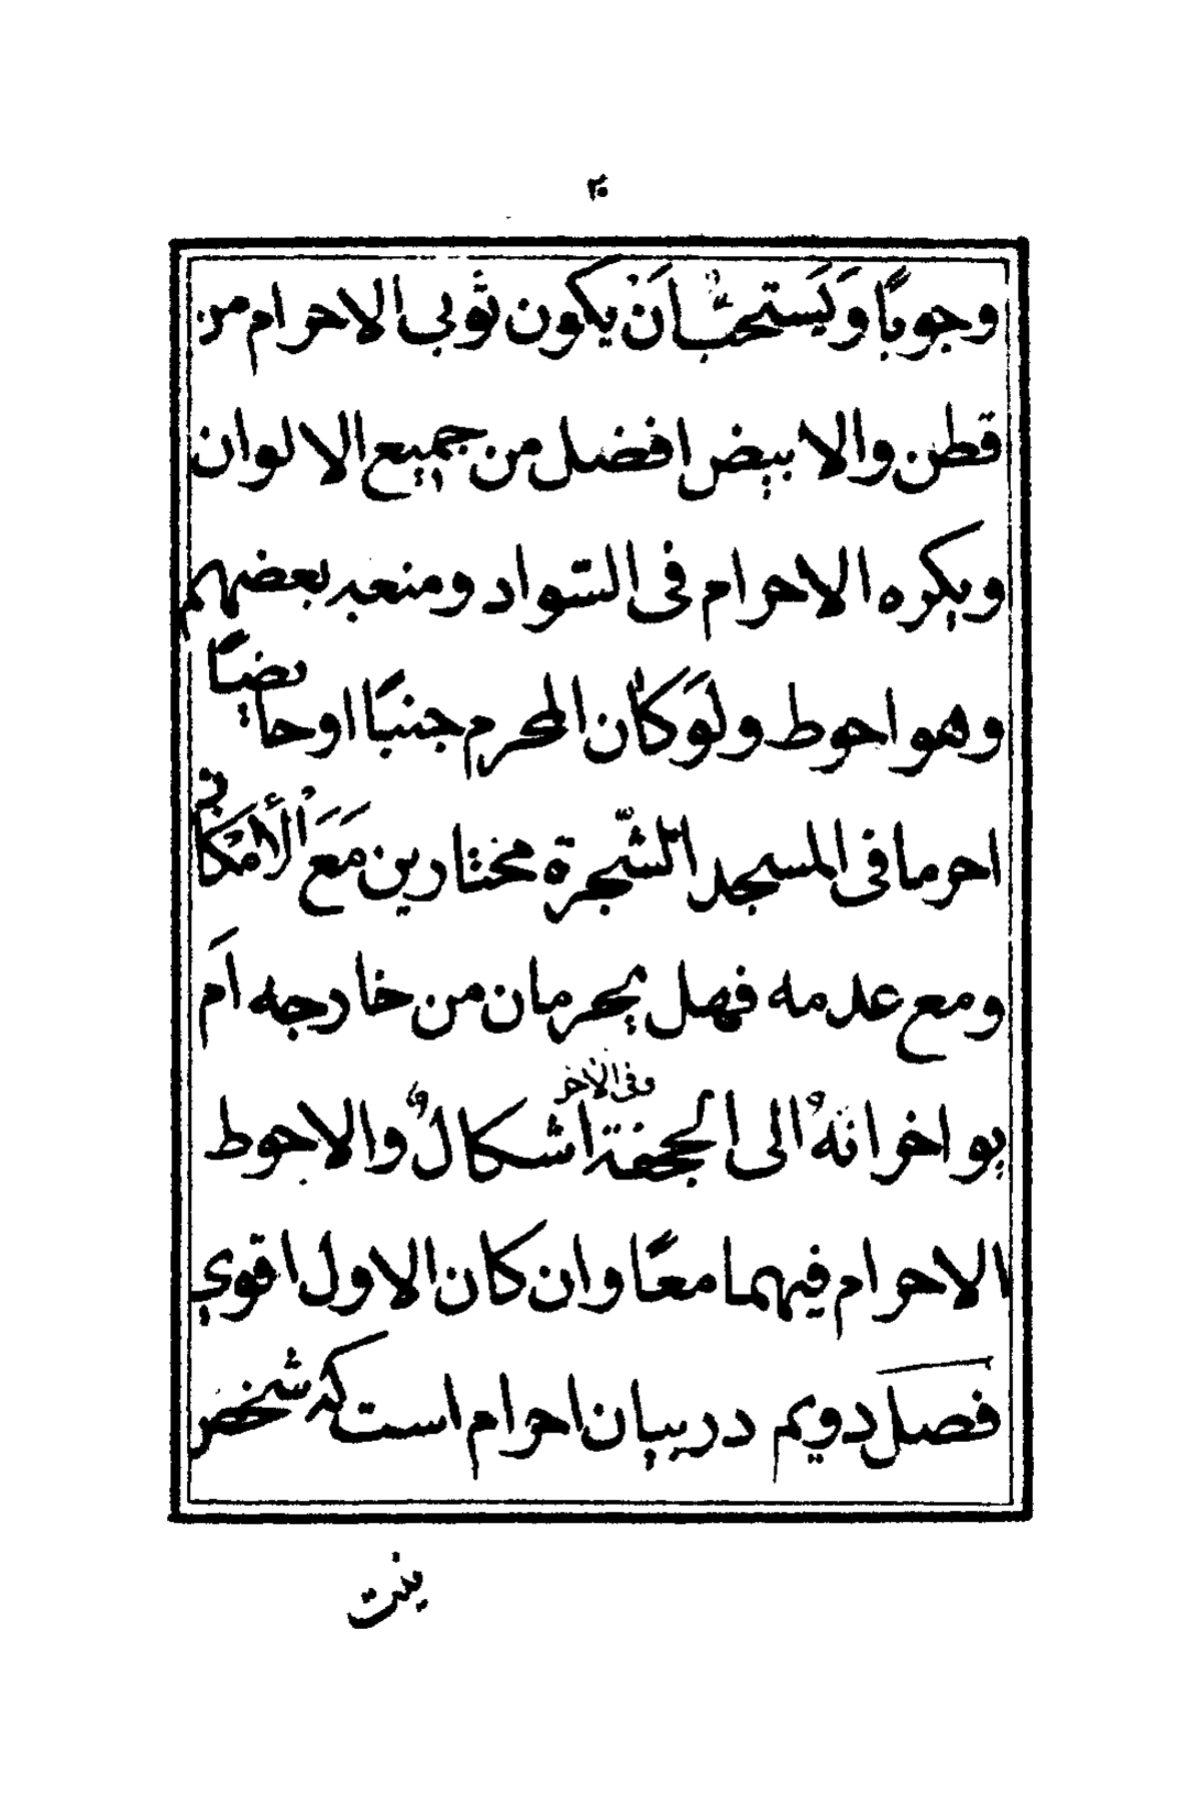 ٣٠
وجوبًا وَيَستحبُّ اَنْ يكون ثَوبى الاحرام من
قطن والابيض افضل من جميع الالوان
ويكره الاحرام فى السّواد ومنعه بعضهم
وهو احوط ولَوكان المحرم جنبًا اوحايضًا
احرما فى المسجد الشّجرة مختارين مَعَ الْأمْكان
ومع عدمه فهل يحرمان من خارجه اَم
وفى الاخر
يواخرانهُ الى الجحفة اشكالٌ والاحوط
الاحرام فيهما معًا وان كان الاول اقوى
فصل دويم در بيان احرام است كه شخص
نيت